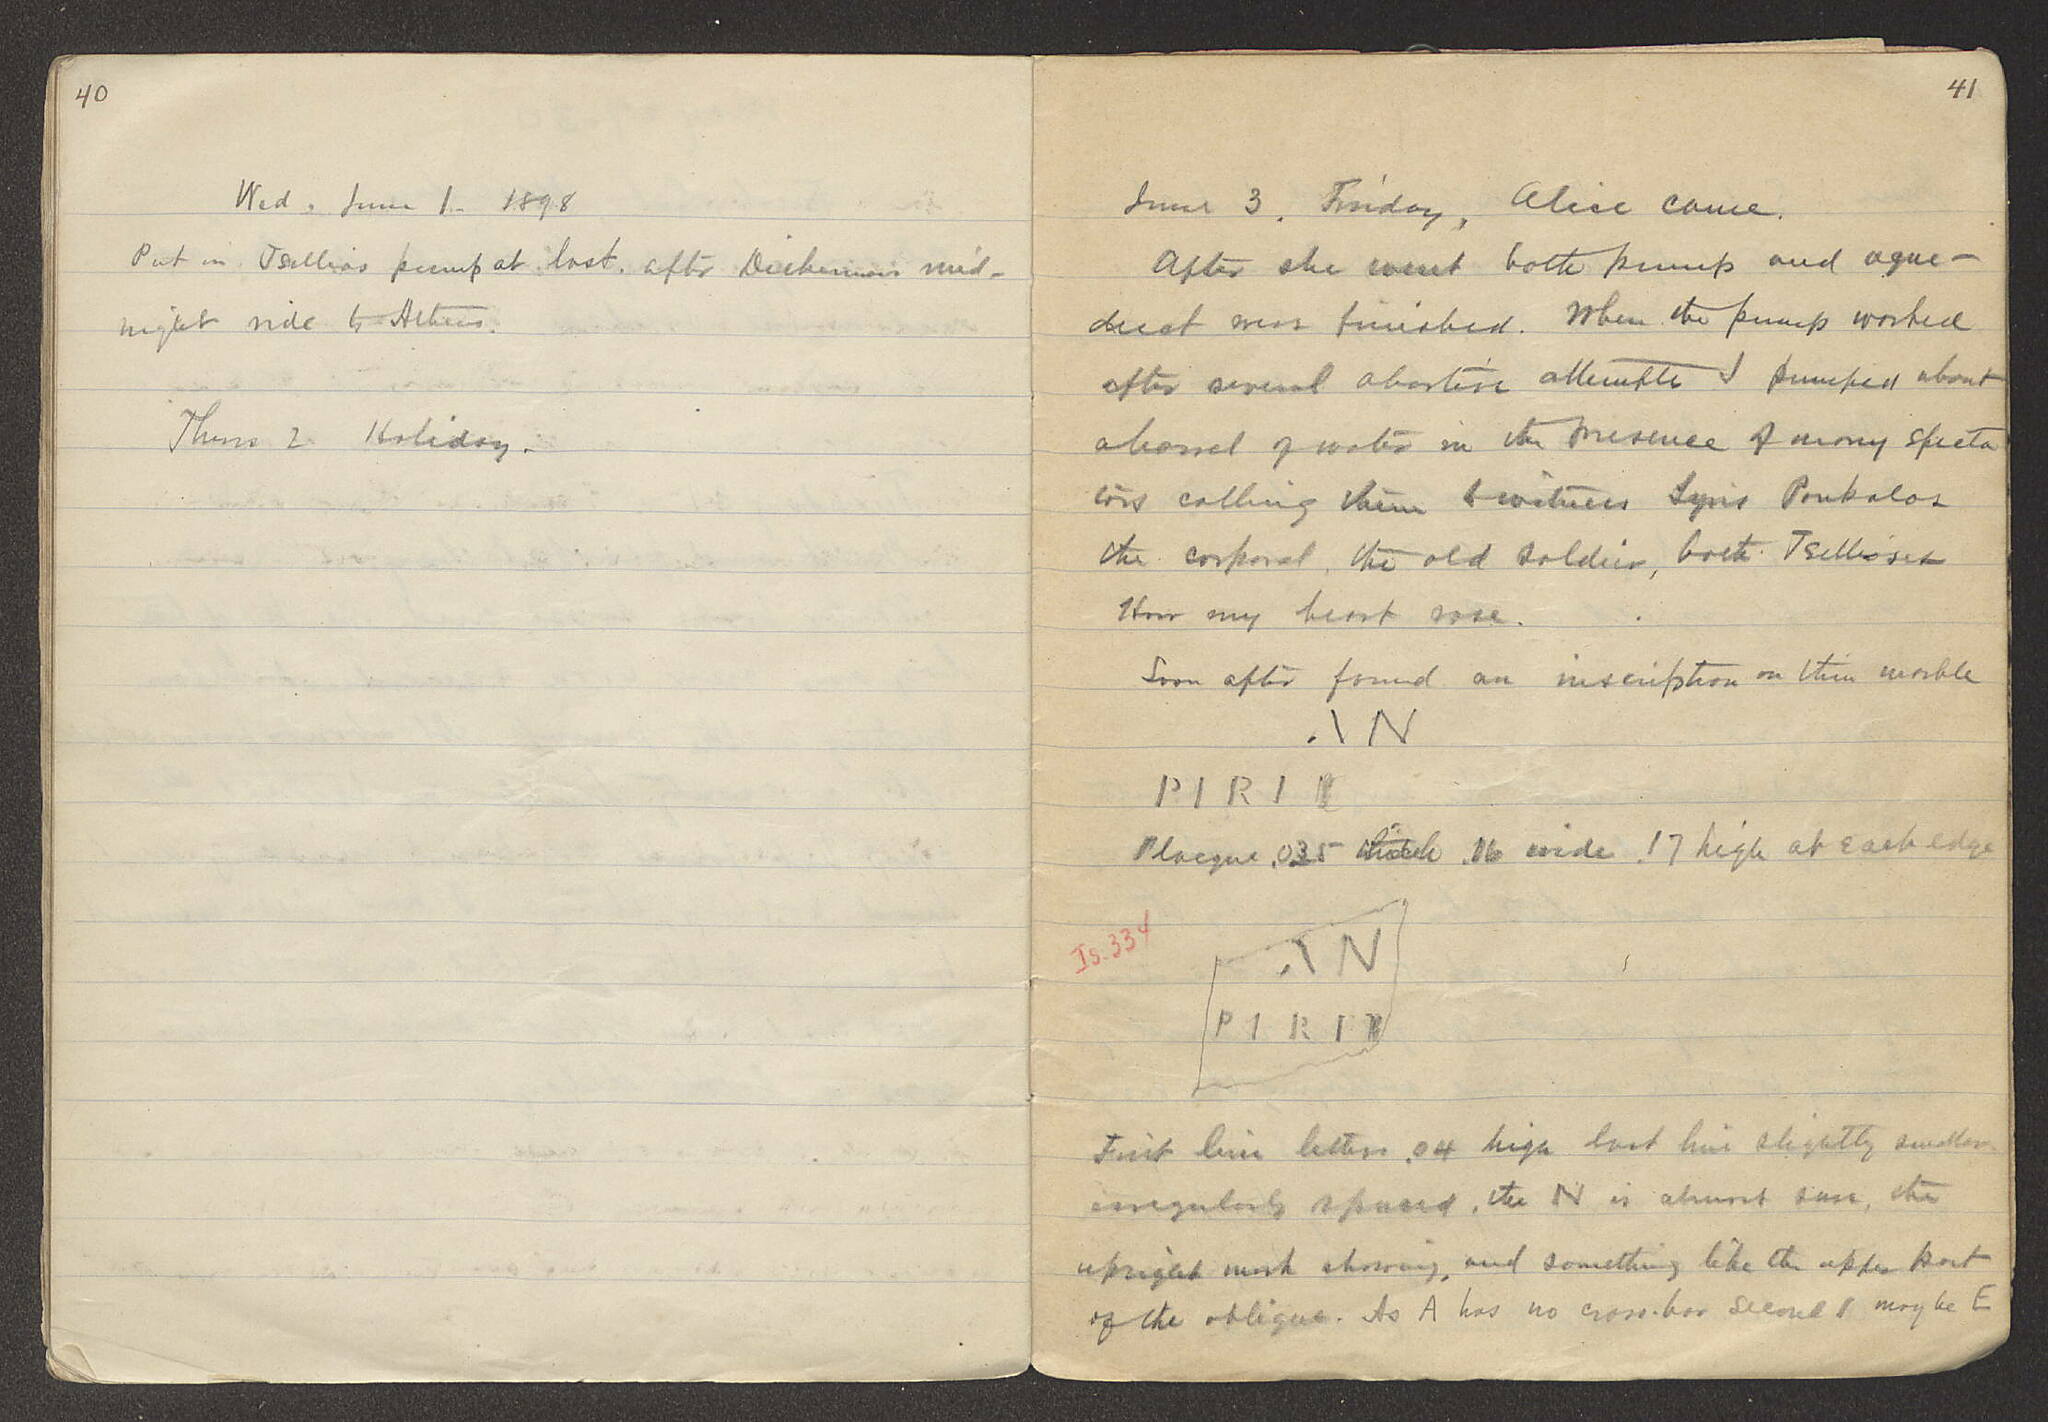 40
Wed, June 1 - 1898
Put in Tsellios pump at last. after Dickermans mid-
night ride to Athens.
Thurs 2. Holiday.
41
June 3. Friday, Alice came.
After she went both pump and aque-
duct were finished. When the pump worked
after several abortive attempts I pumped about
a barrel of water in the presence of many specta
tors calling them to witness Poukalos
the corporal, the old soldier, both
How my heart rose.
Soon after found an inscription on thin marble
.\ N
P I R I N
Placque .035 thick .16 wide .17 high at each edge
Is. 334
.\ N
P I R I N
First line letters .04 high last line slightly smaller
irregularly spaced, the N is almost sure, the
upright mark showing, and something like the upper part
of the oblique. As A has no cross-bar second I may be E